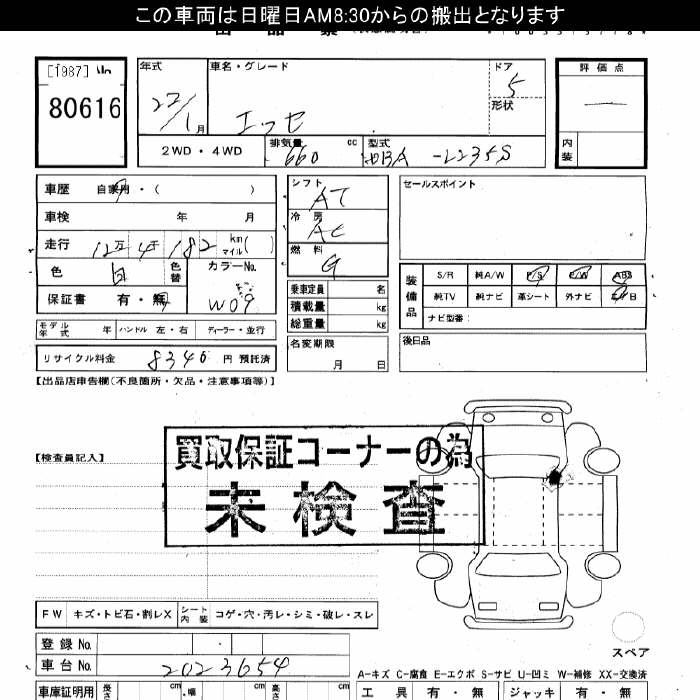 この車両は日曜日AM8:30からの搬出となります
[1987]
80616
年式
22/1月
車名・グレード
エッセ
ドア
5
形状
評価点
—
内装
2WD・4WD
排気量 660 cc
型式
DBA-L235S
車歴 自家用・( )
車検 年 月
走行 12万4千182 km マイル( )
色 白 色替
カラーNo. W09
保証書 有・無
シフト AT
冷房 AC
燃料 G
乗車定員 名
積載量 kg
総重量 kg
セールスポイント
装備品
S/R 純A/W P/S P/W ABS
純TV 純ナビ 革シート 外ナビ エアB
ナビ型番:
モデル年式 年 ハンドル 左・右 ディーラー・並行
名変期限
月 日
後日品
リサイクル料金 8340 円 預託済
【出品店申告欄(不良箇所・欠品・注意事項等)】
【検査員記入】
買取保証コーナーの為
未検査
FW キズ・トビ石・割レX シート内装 コゲ・穴・汚レ・シミ・破レ・スレ
スペア
登録No.
車台No. 2023654
A-キズ C-腐食 E-エクボ S-サビ U-凹ミ W-補修 XX-交換済
車庫証明用 長さ cm 幅 cm 高さ cm
工具 有・無 ジャッキ 有・無